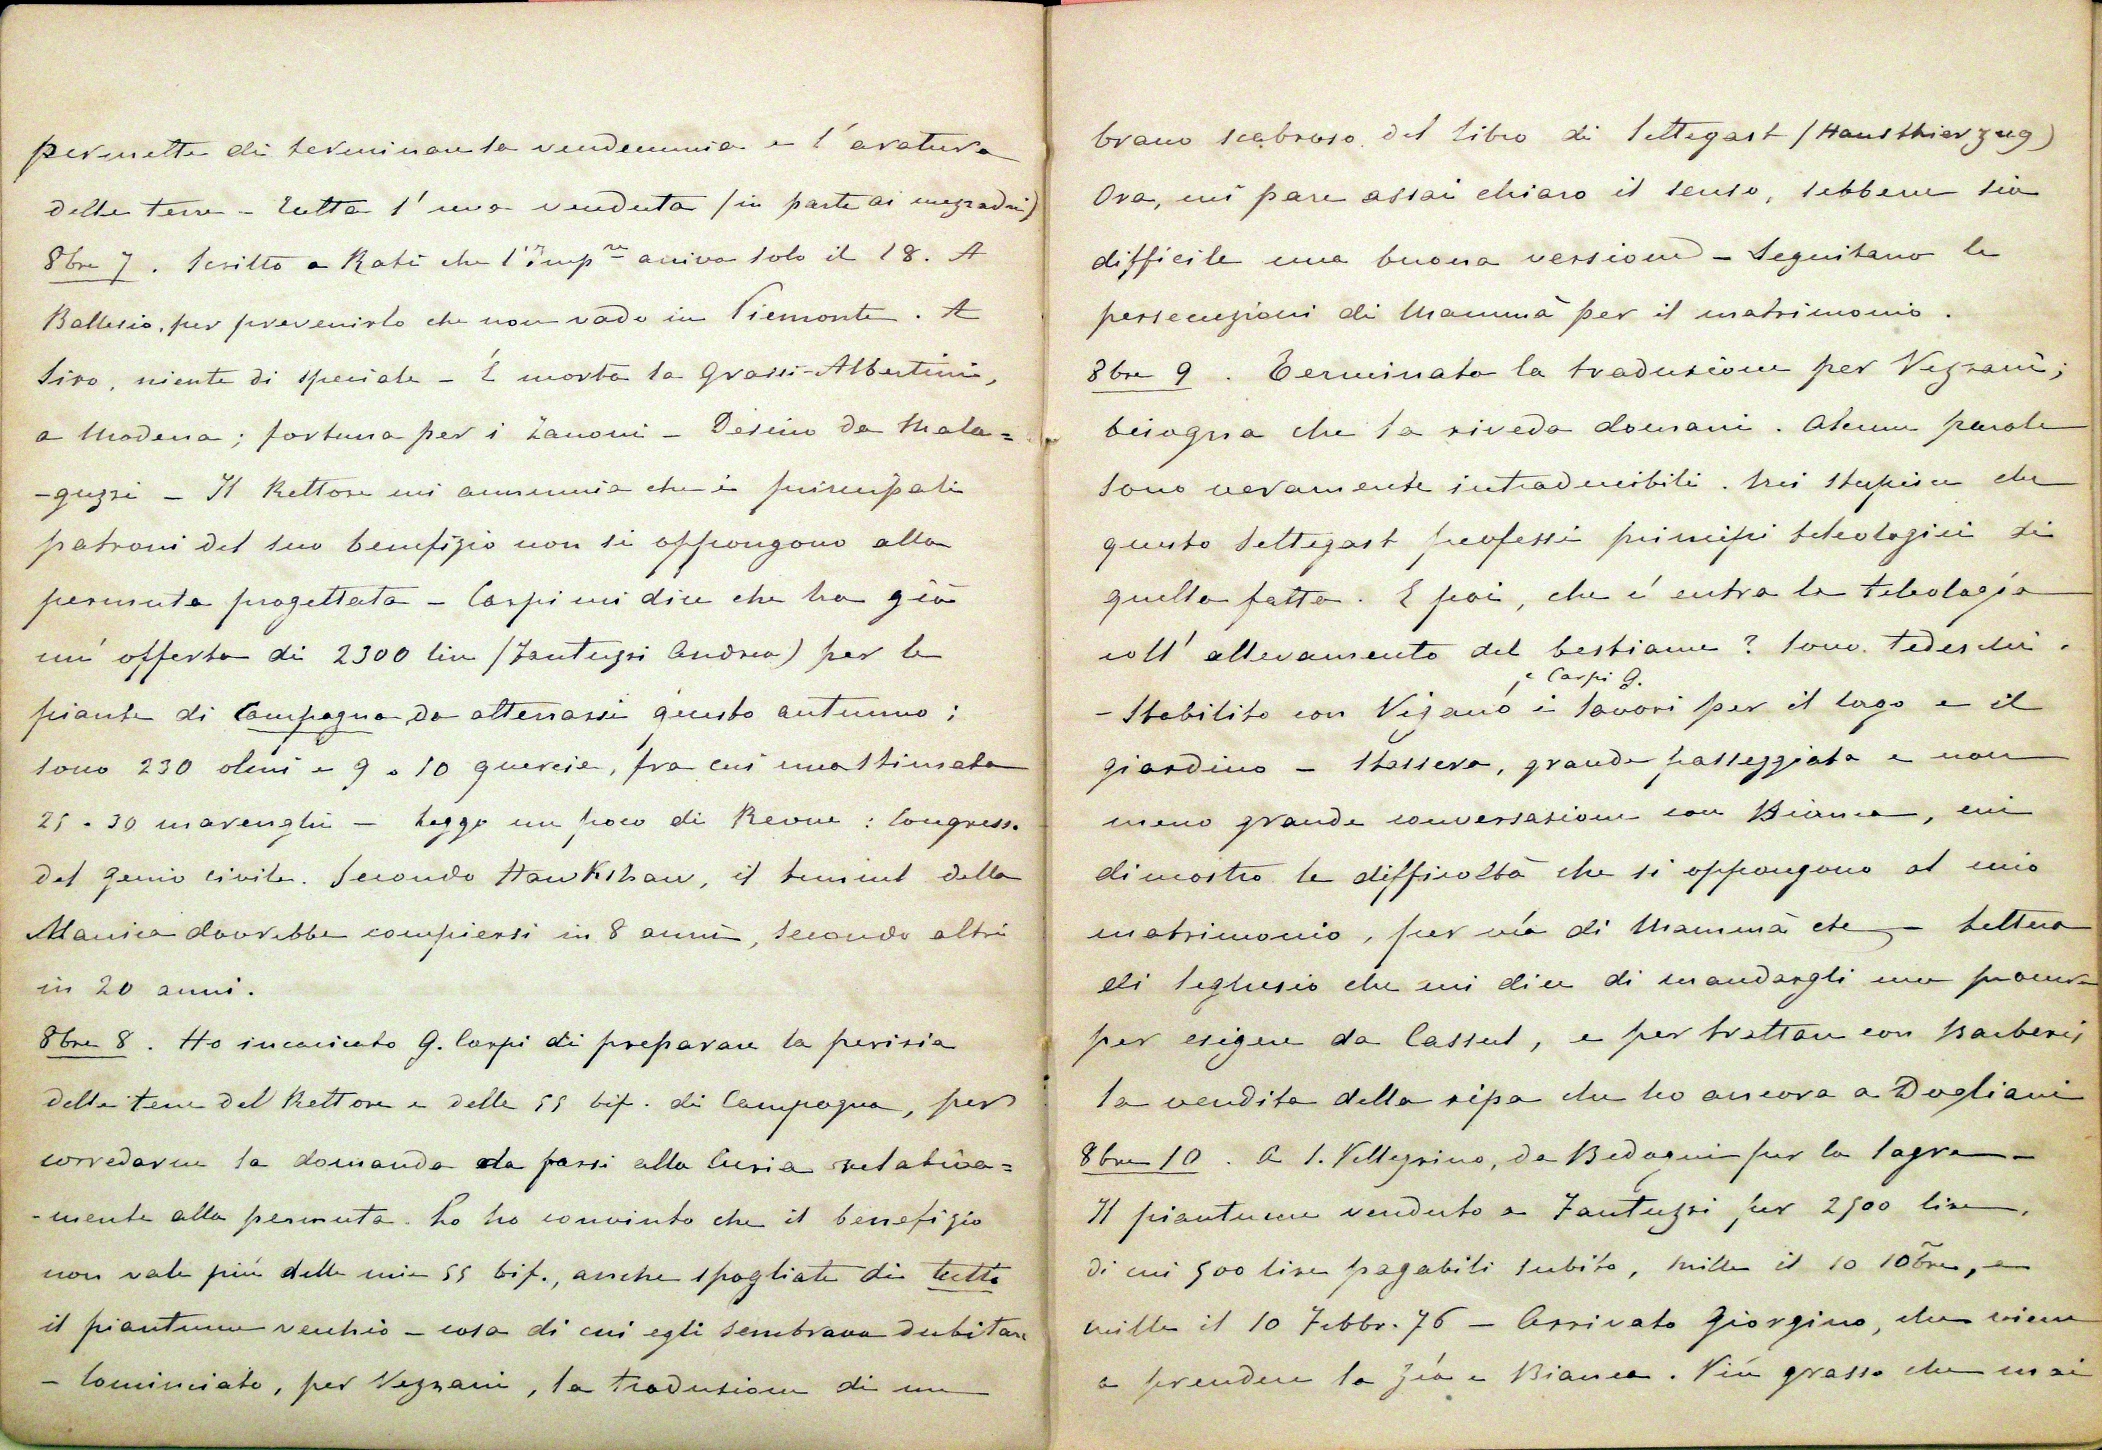 permette di terminare la vendemmia e l'aratura
delle terre - Tutta l'uva venduta (in parte ai mezzadri)
8bre 7. Scritto a Rati che l'Imp.re arriva solo il 18. A
Ballesio, per prevenirlo che non vado in Piemonte. A
Siro, niente di speciale - È morta la Grassi-Albertini,
a Modena; fortuna per i Zanoni - Desino da Mala=
-guzzi - Il Rettore mi annunzia che i principali
patroni del suo benefizio non si oppongono alla
permuta progettata - Carpi mi dice che ha già
un'offerta di 2300 lire (Fantuzzi Andrea) per le
piante di Campagna da atterrarsi questo autunno:
sono 230 olmi e 9 o 10 quercie, fra cui una stimata
25 o 30 marenghi - Leggo un poco di Revue: Congresso
del genio civile. Secondo Hawkshaw, il tunnel della
Manica dovrebbe compiersi in 8 anni, secondo altri
in 20 anni.
8bre 8. Ho incaricato G. Carpi di preparare la perizia
delle terre del Rettore e delle 55 bif. di Campagna, per
corredarne la domanda da farsi alla Curia relativa=
-mente alla permuta. Lo ho convinto che il benefizio
non vale più delle mie 55 bif., anche spogliate di tutto
il piantume vecchio - cosa di cui egli sembrava dubitare
- Cominciato, per Vezzani, la traduzione di un
brano scabroso del libro di Settegast (Hausthierzug)
Ora, mi pare assai chiaro il senso, sebbene sia
difficile una buona versione - Seguitano le
persecuzioni di Mammà per il matrimonio.
8bre 9. Terminata la traduzione per Vezzani;
bisogna che la riveda domani. Alcune parole
sono veramente intraducibili. Mi stupisce che
questo Settegast professi principi teleologici di
quella fatta. E poi, che c'entra la teleologia
coll'allevamento del bestiame? Sono tedeschi.
e Carpi G.
- Stabilito con Viganò i lavori per il lago e il
giardino - Stassera, grande passeggiata e non
meno grande conversazione con Bianca, mi
dimostra le difficoltà che si oppongono al mio
matrimonio, per via di Mammà etc - Lettera
di Seghesio che mi dice di mandargli una procura
per esigere da Cassul, e per trattare con Barberis
la vendita della ripa che ho ancora a Dogliani
8bre 10. A S. Pellegrino, da Bedogni per la sagra -
Il piantume venduto a Fantuzzi per 2500 lire,
di cui 500 lire pagabili subito, mille il 10 10bre, e
mille il 10 Febbr. 76 - Arrivato Giorgino, che viene
a prendere la zia e Bianca. Più grasso che mai